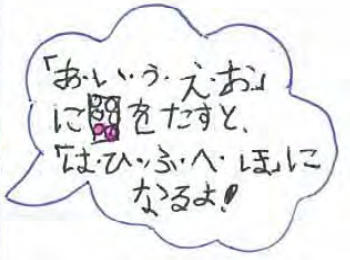 「あ・い・う・え・お」
に をたすと、
「は・ひ・ふ・へ・ほ」に
なるよ!